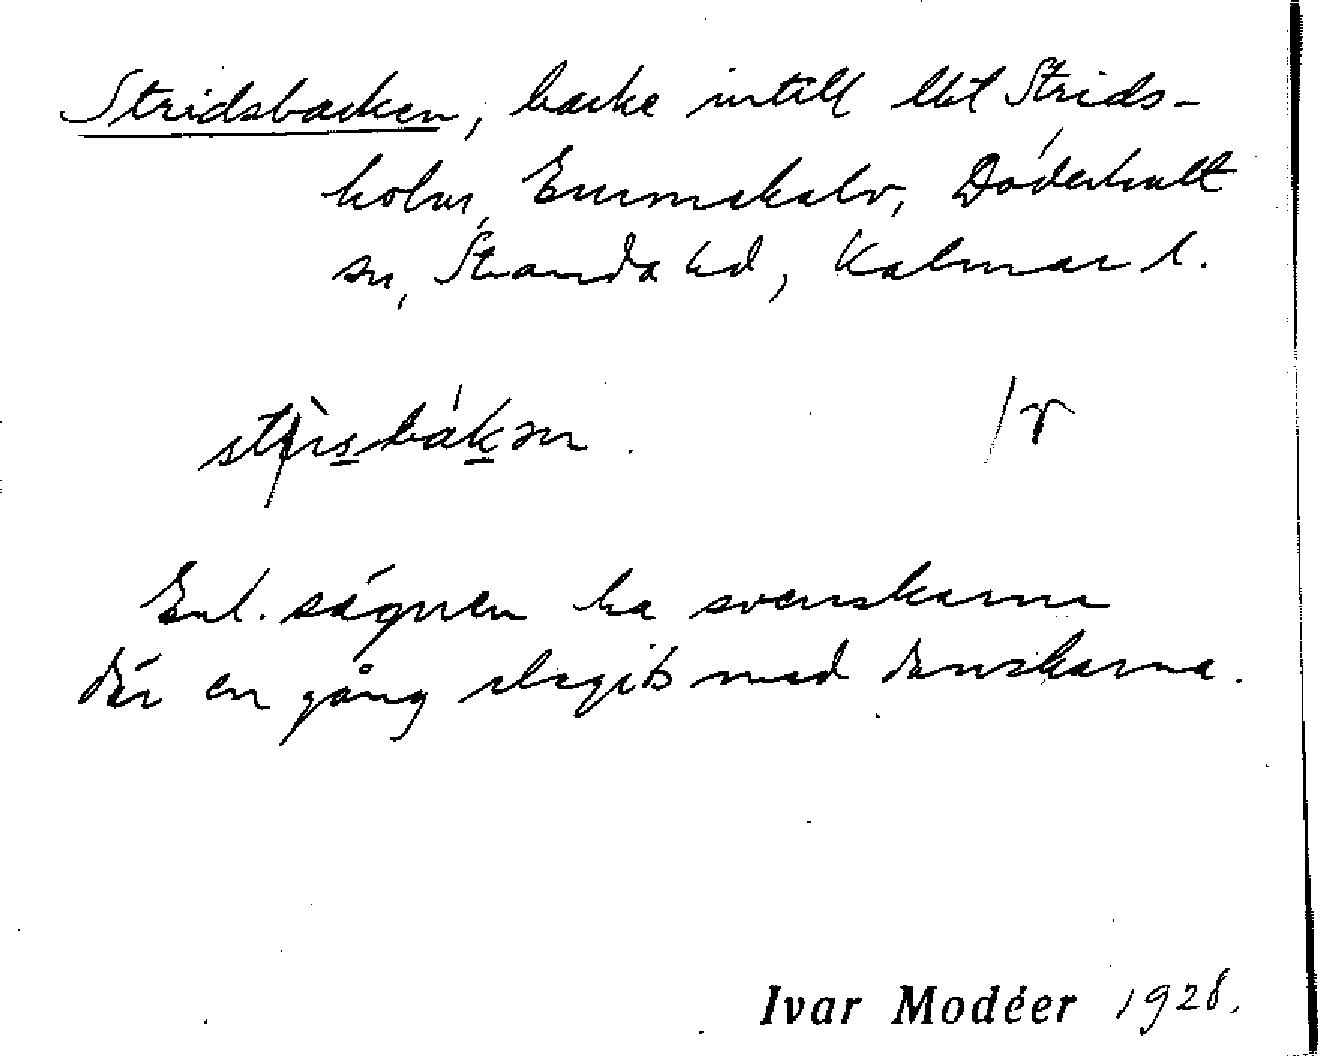 Stridsbacken, backe intill lht Strids-
holm, Emmekalv, Döderhult
sn, Stranda hd, Kalmar l.
Enl. sägnen ha svenskarna
där en gång slagits med danskarna.
Ivar Modéer 1928.